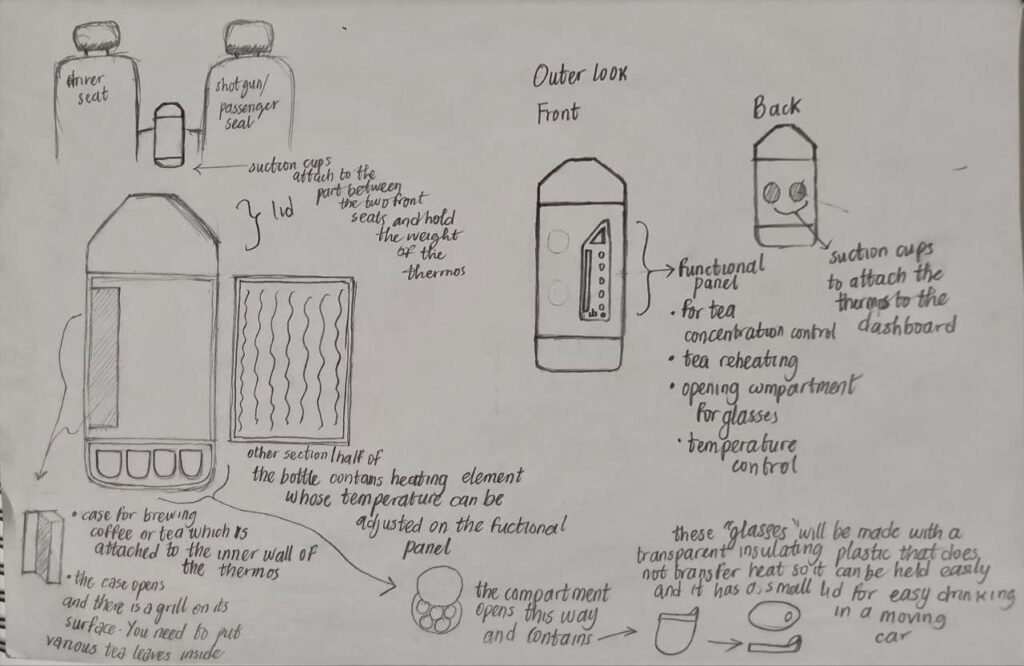 driver
seat
shotgun/
passenger
seat
suction cups
attach to the
part between
the two front
seats and hold
the weight
of the
thermos
lid
other section/half of
the bottle contains heating element
whose temperature can be
adjusted on the fuctional
panel
• case for brewing
coffee or tea which is
attached to the inner wall of
the thermos
• the case opens
and there is a grill on its
surface. You need to put
various tea leaves inside
the compartment
opens this way
and contains
Outer look
Front
functional
panel
• for tea
concentration control
• tea reheating
• opening compartment
for glasses
• temperature
control
Back
suction cups
to attach the
thermos to the
dashboard
these "glasses" will be made with a
transparent insulating plastic that does
not transfer heat so it can be held easily
and it has a small lid for easy drinking
in a moving
car